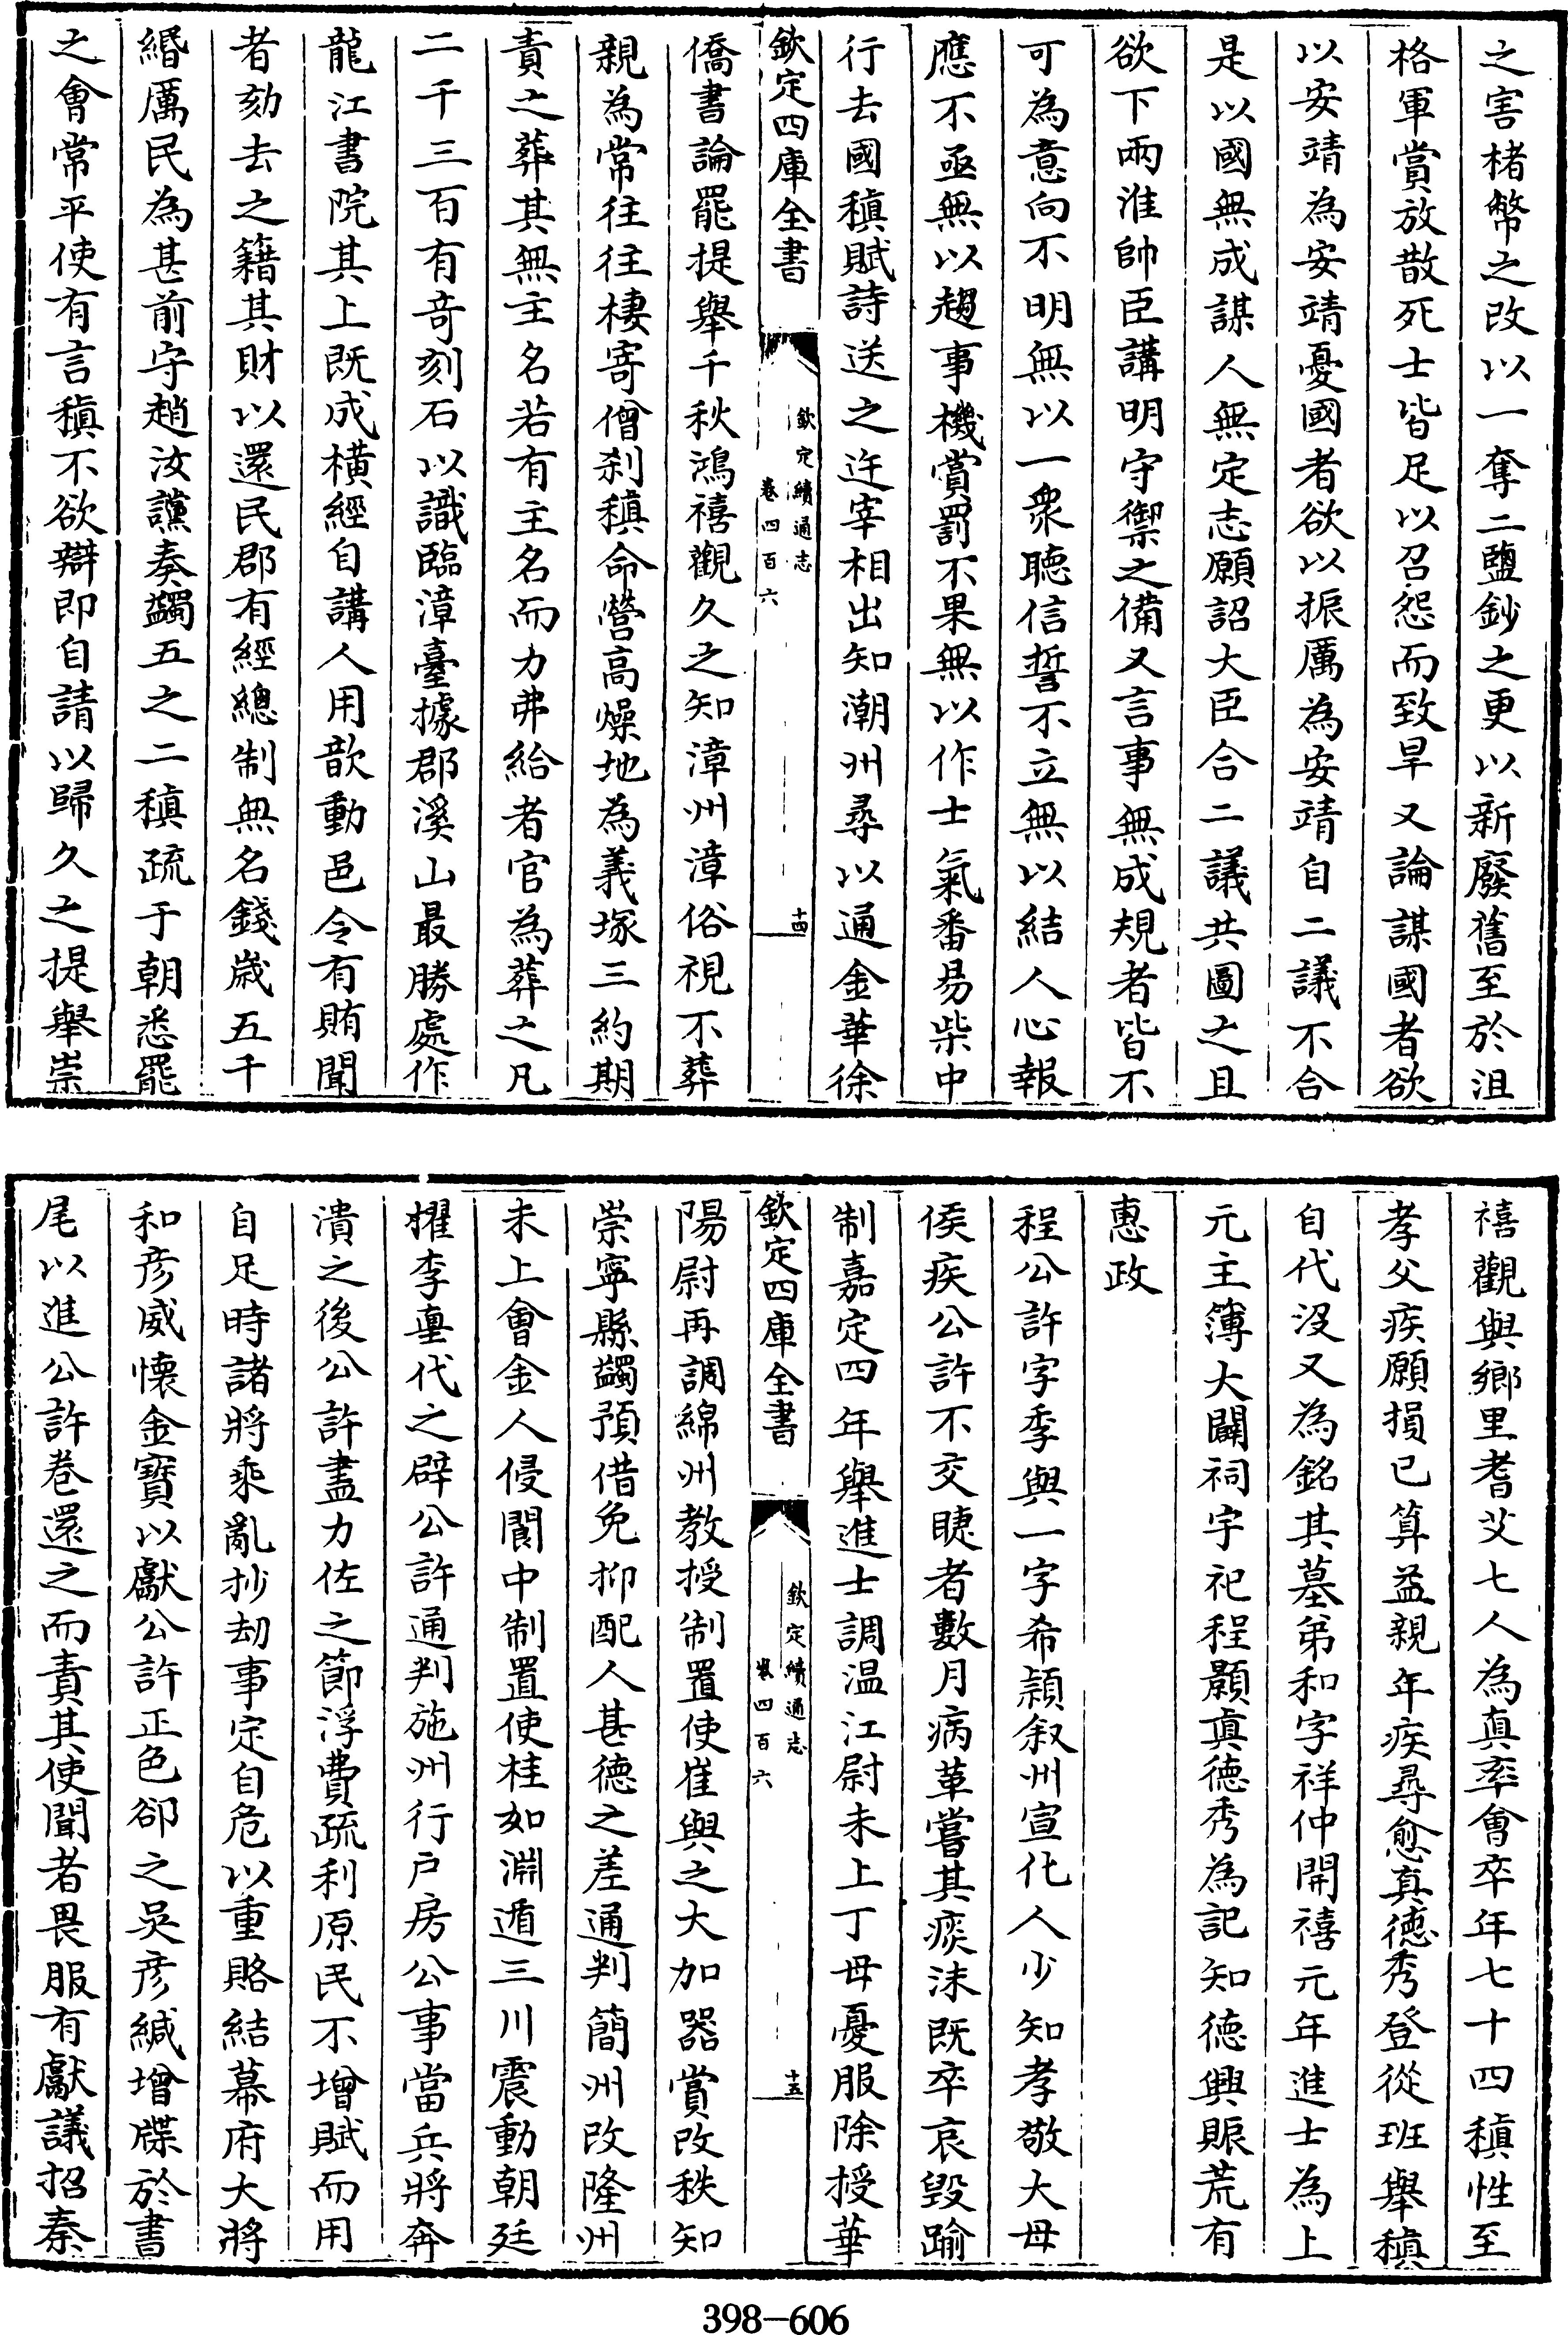 之害楮幣之改以一奪二鹽鈔之更以新廢舊至於沮
格軍賞放散死士皆足以召怨而致旱又論謀國者欲
以安靖為安靖憂國者欲以振厲為安靖自二議不合
是以國無成謀人無定志願詔大臣合二議共圖之且
欲下兩淮帥臣講明守禦之備又言事無成規者皆不
可為意向不明無以一衆聽信誓不立無以結人心報
應不亟無以趨事機賞罰不果無以作士氣番易柴中
行去國稹賦詩送之迕宰相出知潮州尋以通金華徐
欽定四庫全書
欽定續通志
卷四百六
十四
僑書論罷提舉千秋鴻禧觀久之知漳州漳俗視不葬
親為常往往棲寄僧剎稹命營高燥地為義塚三約期
責之葬其無主名若有主名而力弗給者官為葬之凡
二千三百有奇刻石以識臨漳臺據郡溪山最勝處作
龍江書院其上既成橫經自講人用歆動邑令有賄聞
者劾去之籍其財以還民郡有經總制無名錢歲五千
緡厲民為甚前守趙汝讜奏蠲五之二稹疏于朝悉罷
之會常平使有言稹不欲辯即自請以歸久之提舉崇
禧觀與鄉里耆艾七人為真率會卒年七十四稹性至
孝父疾願損已算益親年疾尋愈真德秀登從班舉稹
自代沒又為銘其墓弟和字祥仲開禧元年進士為上
元主簿大闢祠宇祀程顥真德秀為記知德興賑荒有
惠政
程公許字季與一字希穎叙州宣化人少知孝敬大母
侯疾公許不交睫者數月病革嘗其痰沫既卒哀毀踰
制嘉定四年舉進士調温江尉未上丁母憂服除授華
欽定四庫全書
欽定續通志
卷四百六
十五
陽尉再調綿州教授制置使崔與之大加器賞改秩知
崇寧縣蠲預借免抑配人甚德之差通判簡州改隆州
未上會金人侵閬中制置使桂如淵遁三川震動朝廷
擢李𡌴代之辟公許通判施州行户房公事當兵將奔
潰之後公許盡力佐之節浮費疏利原民不增賦而用
自足時諸將乘亂抄刼事定自危以重賂結幕府大將
和彦威懷金寳以獻公許正色卻之吳彦緘增牒於書
尾以進公許卷還之而責其使聞者畏服有獻議招秦
398-606